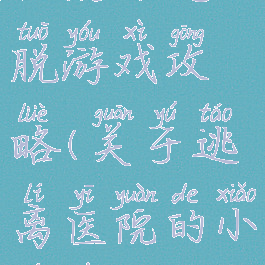 tuō yóu xì gōng
脱游戏攻
lüè guān yú táo
略(关于逃
lí yī yuàn de xiǎo
离医院的小